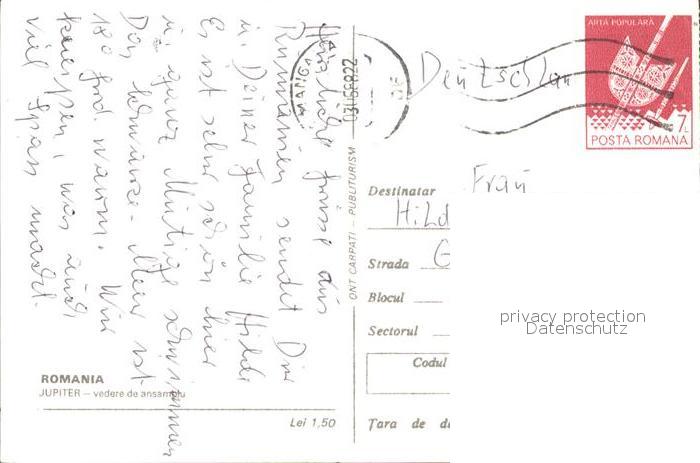 Herzliche Grüsse aus
Rumänien sendet Dir
u. Deiner Familie Hilde
Es ist sehr schön hier
u. ganz Mutige schwimmen
Das schwarze Meer ist
18° warm. Wir
was auch
viel Spass macht.
ROMANIA
JUPITER – vedere de ansamblu
Lei 1,50
ONT CARPATI – PUBLITURISM
MANGA
Deutschlan
ARTA POPULARĂ
7L
POSTA ROMANA
Frau
Destinatar
Hild
Strada G
Blocul
Sectorul
Codul
Țara de d
privacy protection
Datenschutz